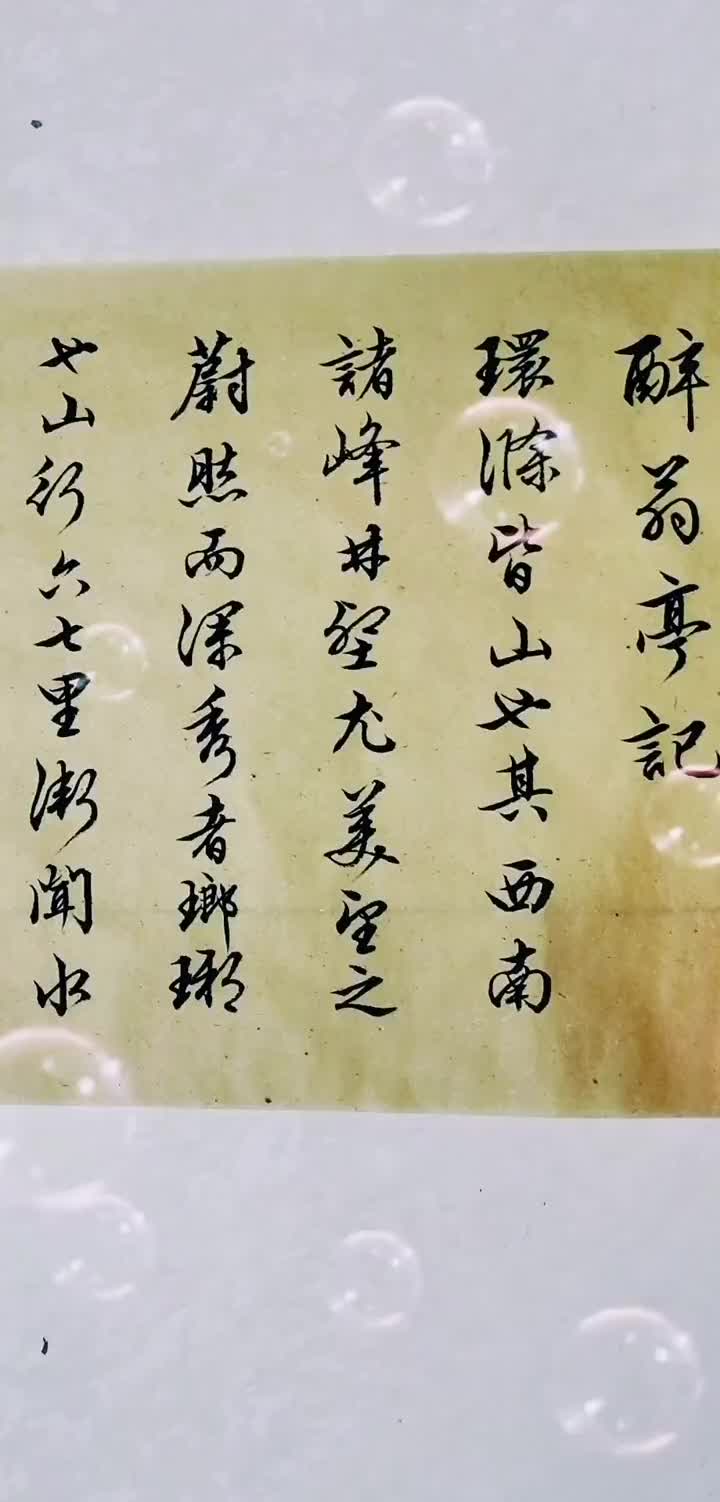 醉翁亭記
環滁皆山也其西南
諸峰林壑尤美望之
蔚然而深秀者瑯琊
也山行六七里漸聞水